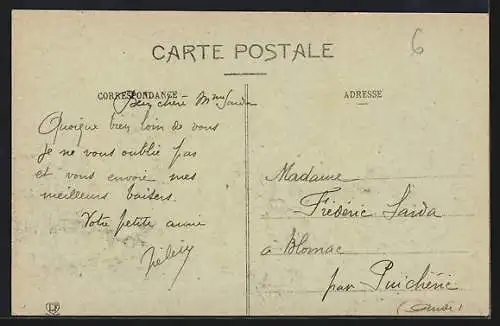 CARTE POSTALE
6
CORRESPONDANCE
ADRESSE
Bien chère Mme Sarda
Quoique bien loin de vous
Je ne vous oublie pas
et vous envoie mes
meilleurs baisers.
Votre petite amie
Madame
Frédéric Sarda
à Blomac
par Puichéric
(Aude)